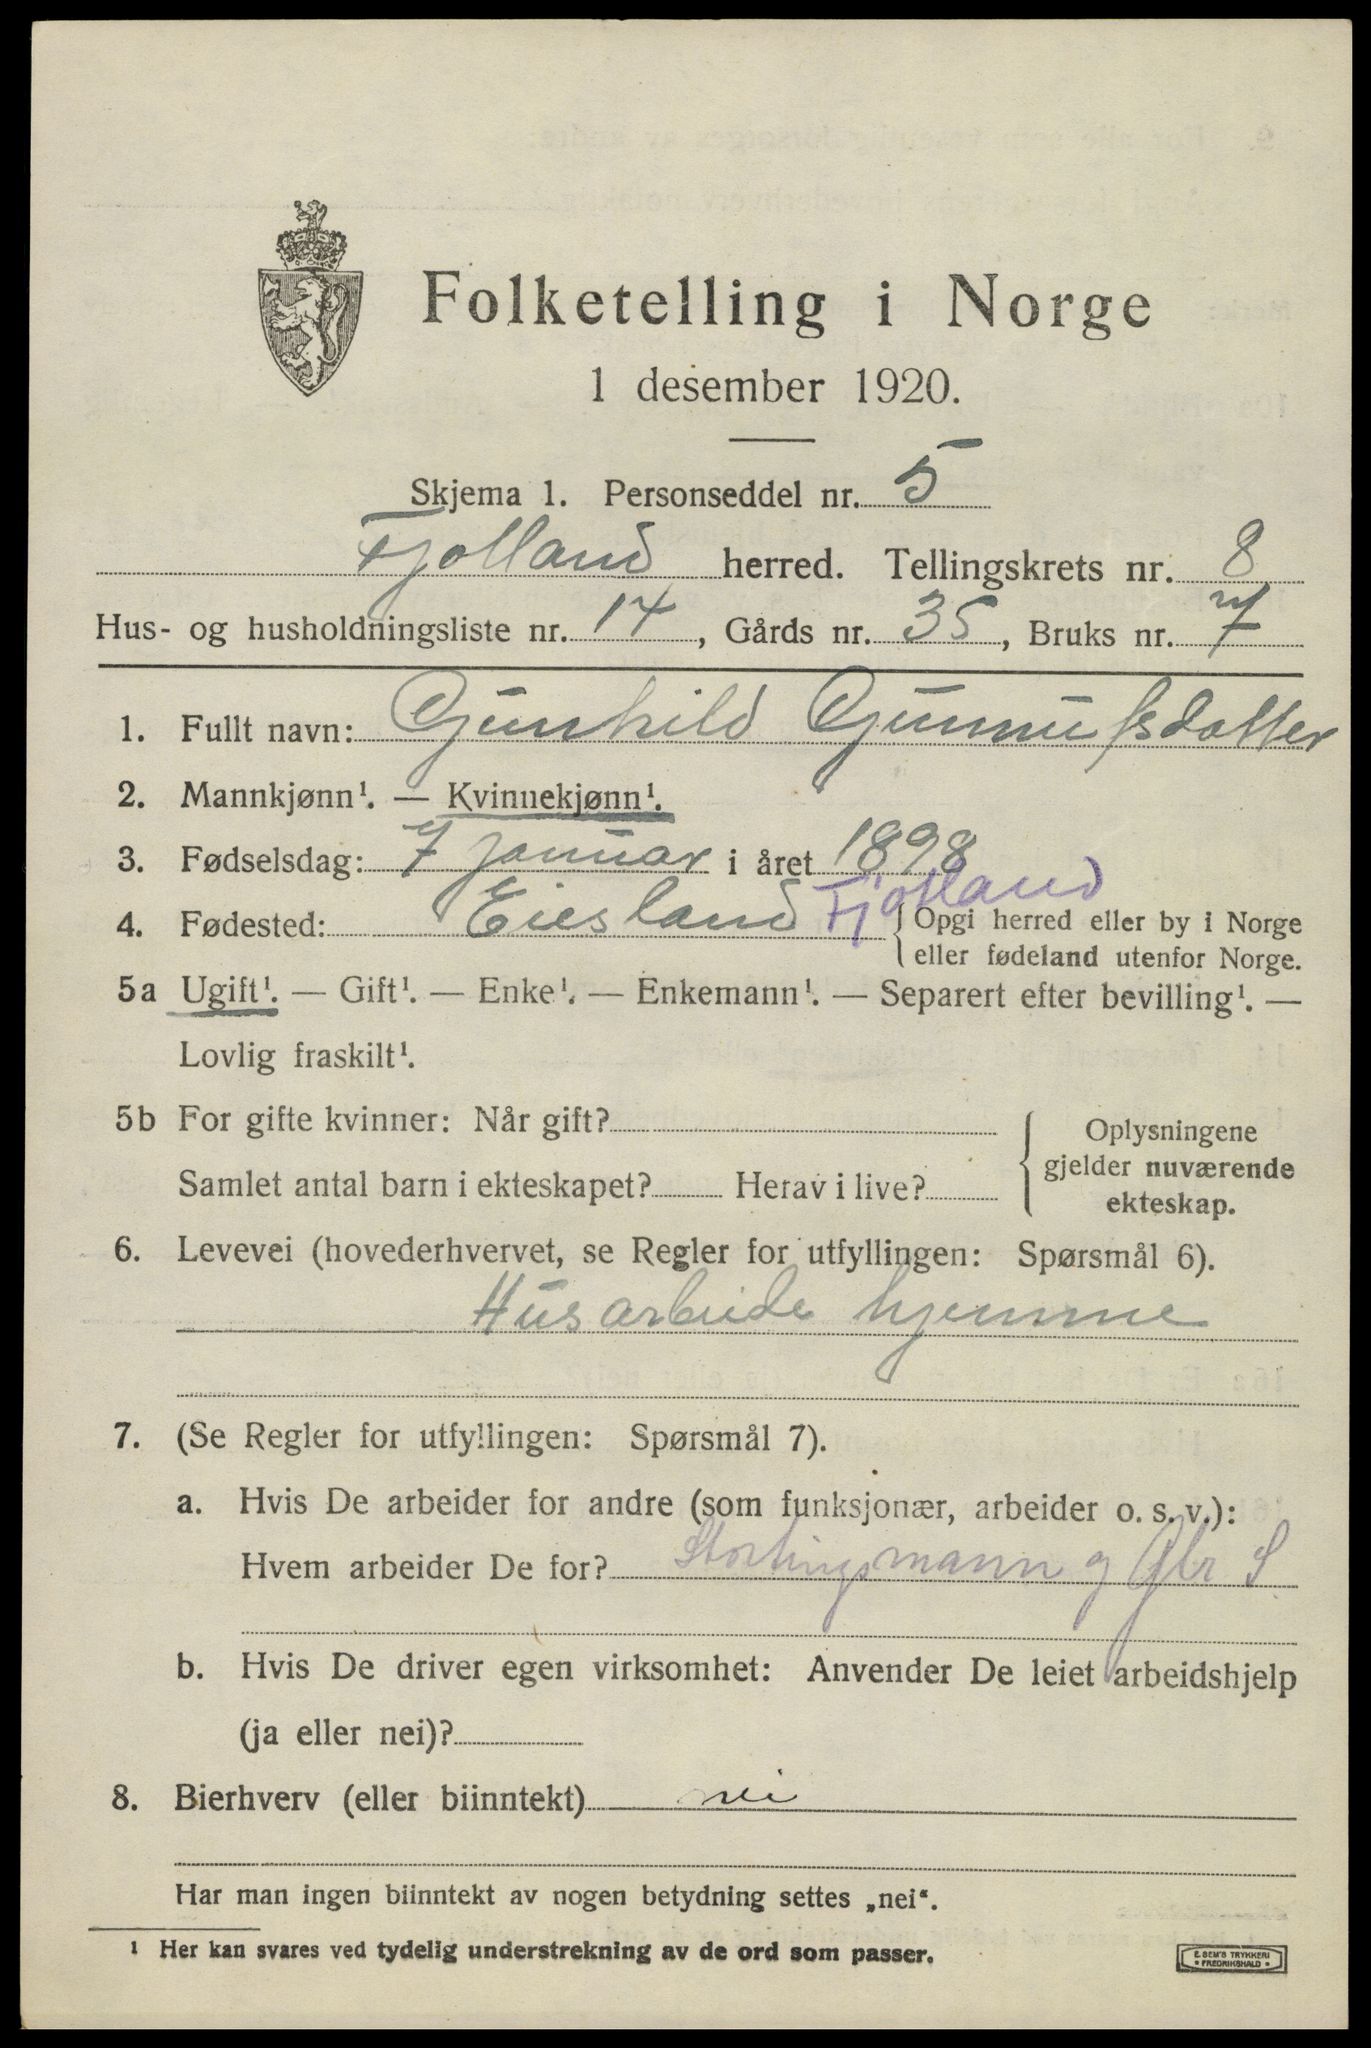 Folketelling i Norge
1 desember 1920.
Skjema 1. Personseddel nr. 5
Fjotland herred. Tellingskrets nr. 8
Hus- og husholdningsliste nr. 14, Gårds nr. 35, Bruks nr. 7
1. Fullt navn: Gunhild Gunnufsdatter
2. Mannkjønn¹. — Kvinnekjønn¹.
3. Fødselsdag: 7 januar i året 1898
4. Fødested: Eiesland Fjotland { Opgi herred eller by i Norge
eller fødeland utenfor Norge.
5a Ugift¹. — Gift¹. — Enke¹. — Enkemann¹. — Separert efter bevilling¹. —
Lovlig fraskilt¹.
5b For gifte kvinner: Når gift?
Samlet antal barn i ekteskapet? Herav i live?
{ Oplysningene
gjelder nuværende
ekteskap.
6. Levevei (hovederhvervet, se Regler for utfyllingen: Spørsmål 6).
Husarbeide hjemme
7. (Se Regler for utfyllingen: Spørsmål 7).
a. Hvis De arbeider for andre (som funksjonær, arbeider o. s. v.):
Hvem arbeider De for? Stortingsmann og Gbr S
b. Hvis De driver egen virksomhet: Anvender De leiet arbeidshjelp
(ja eller nei)?
8. Bierhverv (eller biinntekt) nei
Har man ingen biinntekt av nogen betydning settes „nei“.
¹ Her kan svares ved tydelig understrekning av de ord som passer.
E. SEM'S TRYKKERI
* FREDRIKSHALD *